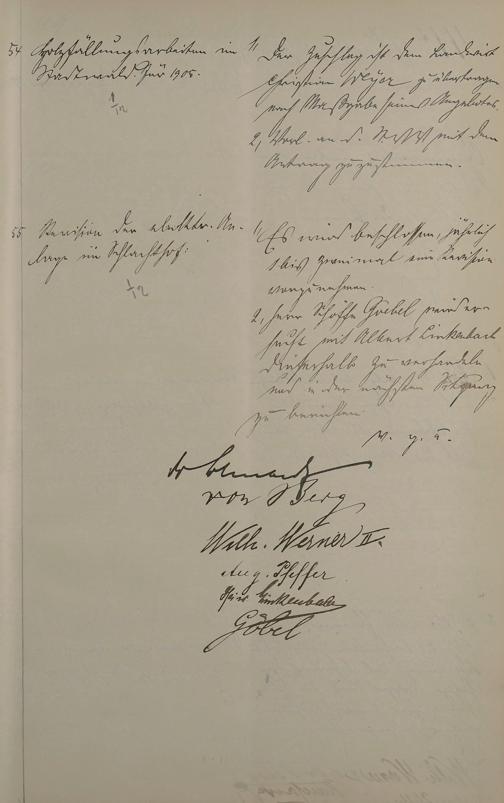 54 Holzfällungsarbeiten im
Stadtwald. Für 1905.
1/12
1) Der Zuschlag ist dem Landwirt
Christian Meyer zu übertragen
nach Maßgabe seines Angebotes.
2, Vorl. an d. St.V.V. mit dem
Antrag zuzustimmen.
55 Revision der elektr. An-
lage im Schlachthof:
1/12
1) Es wird beschlossen, jährlich
1 bis zweimal eine Revision
vorzunehmen.
2, Herr Schöffe Goebel wird er-
sucht mit Albert Linkenbach
dieserhalb zu verhandeln
und in der nächsten Sitzung
zu berichten
v. g. u.
von Berg
Wilh. Werner II.
Aug. Pfeffer
Linkenbach
Göbel